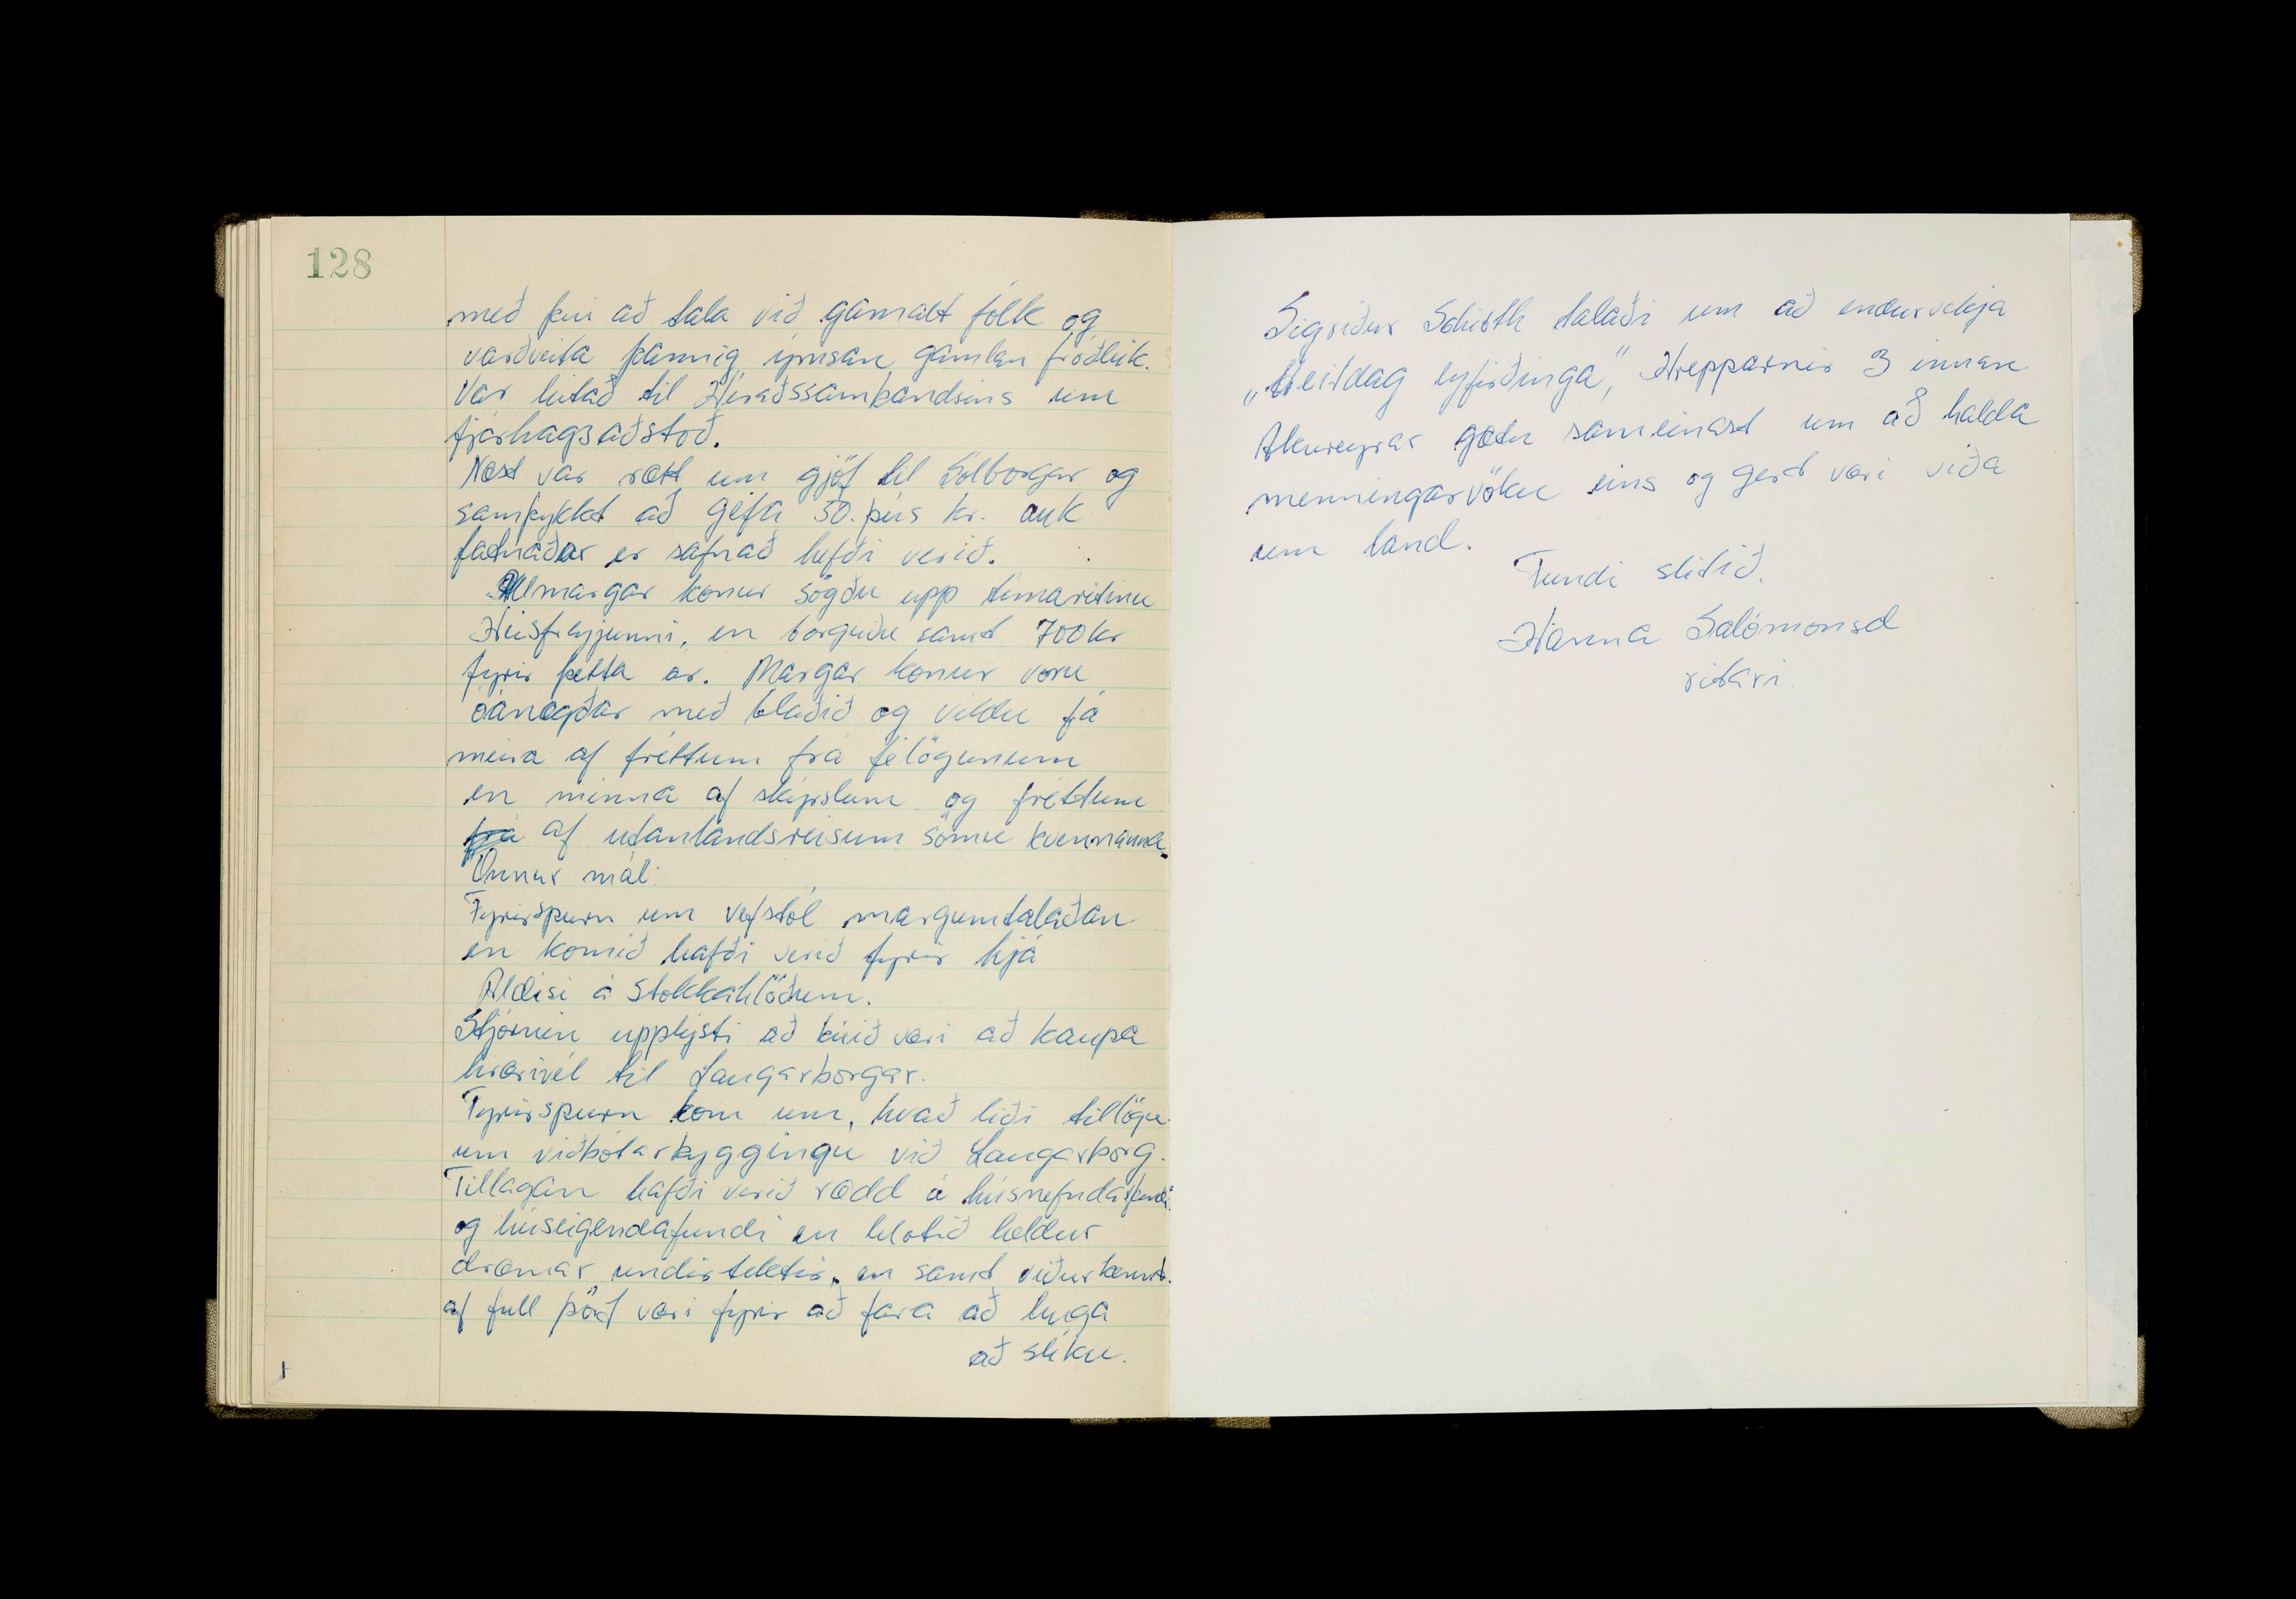 128
með því að tala við gamalt fólk og
varðveita þannig ýmsan gamlan fróðleik.
Var leitað til Héraðssambandsins um
fjárhagsaðstoð.
Næst var rætt um gjöf til Sólborgar og
samþykkt að gefa 50. þús kr. auk
fatnaðar er safnað hefði verið.
Allmargar konur sögðu upp tímaritinu
Húsfreyjunni, en borguðu samt 700 kr
fyrir þetta ár. Margar konur voru
óánægðar með blaðið og vildu fá
meira af fréttum frá félögunum
en minna af skýrslum og fréttum
frá af utanlandsreisum sömu kvenmanna.
Önnur mál:
Fyrirspurn um vefstól margumtalaðan
en komið hafði verið fyrir hjá
Aldísi á Stokkahlöðum.
Stjórnin upplýsti að búið væri að kaupa
hrærivél til Laugarborgar.
Fyrirspurn kom um, hvað liði tillögu
um viðbótarbyggingu við Laugarborg.
Tillagan hafði verið rædd á húsnefndarfundi
og húseigendafundi en hlotið heldur
dræmar undirtektir, en samt viðurkennt.
af full þörf væri fyrir að fara að huga
að slíku.
Sigríður Schiöth talaði um að endurvekja
„Heitdag eyfirðinga", Hrepparnir 3 innan
Akureyrar gætu sameinast um að halda
menningarvöku eins og gert væri víða
um land.
Fundi slitið.
Hanna Salómonsd
ritari.